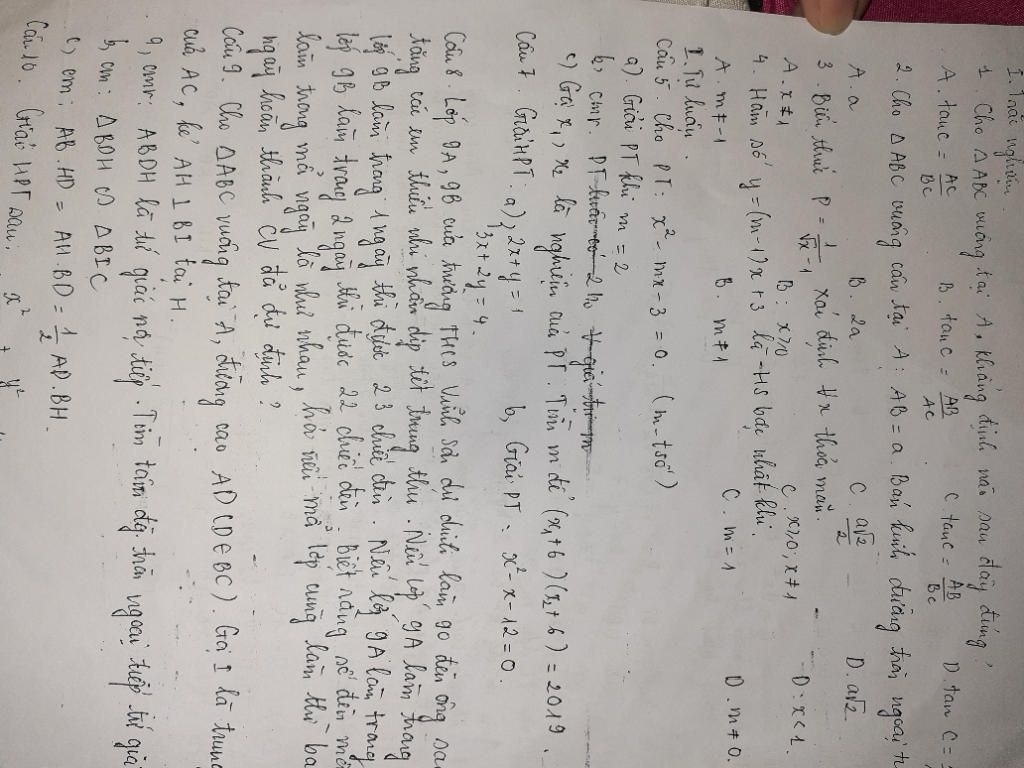 I. Trắc nghiệm.
1. Cho △ABC vuông tại A. Khẳng định nào sau đây đúng?
A. tanC = AC/BC B. tanC = AB/AC C. tanC = AB/BC D. tan C =
2. Cho △ABC vuông cân tại A: AB = a. Bán kính đường tròn ngoại
A. a B. 2a C. a√2/2 D. a√2
3. Biểu thức P = 1/(√x - 1) xác định ∀x thỏa mãn.
A. x ≠ 1 B. x ≥ 0 C. x ≥ 0; x ≠ 1 D. x < 1.
4. Hàm số y = (m-1)x + 3 là HS bậc nhất khi.
A. m ≠ -1 B. m ≠ 1 C. m = 1 D. m ≠ 0.
II. Tự luận.
Câu 5. Cho PT: x² - mx - 3 = 0. (m - t số)
a) Giải PT khi m = 2
b, cmr. PT luôn có 2 n₀
c) Gọi x₁, x₂ là nghiệm của PT. Tìm m để (x₁ + 6)(x₂ + 6) = 2019.
Câu 7. Giải HPT: a), 2x + y = 1 b, Giải PT: x² - x - 12 = 0.
3x + 2y = 4.
Câu 8. Lớp 9A, 9B của trường THCS Vĩnh Sơn dự định làm 90 đèn ông sao
tặng các em thiếu nhi nhân dịp tết trung thu. Nếu lớp 9A làm trong
lớp 9B làm trong 1 ngày thì được 23 chiếc đèn. Nếu lớp 9A làm trong
lớp 9B làm trong 2 ngày thì được 22 chiếc đèn. Biết rằng số đèn mỗi
làm trong mỗi ngày là như nhau, hỏi nếu mỗi lớp cùng làm thì bao
ngày hoàn thành CV đã dự định?
Câu 9. Cho △ABC vuông tại A, đường cao AD (D ∈ BC). Gọi I là trung
của AC, kẻ AH ⊥ BI tại H.
a, cmr: ABDH là tứ giác nội tiếp. Tìm tâm đg tròn ngoại tiếp tứ giác
b, cm: △BDH ∽ △BIC
c, cm: AB.HD = AH.BD = 1/2 AD.BH.
Câu 10. Giải HPT sau: x² + y²